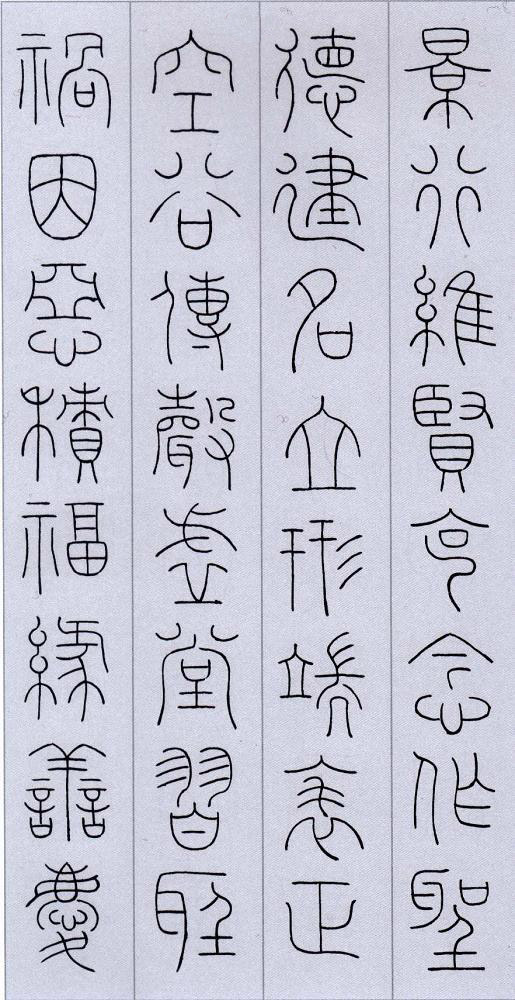 景行維賢克念作聖
德建名立形端表正
空谷傳聲虛堂習聽
禍因惡積福緣善慶